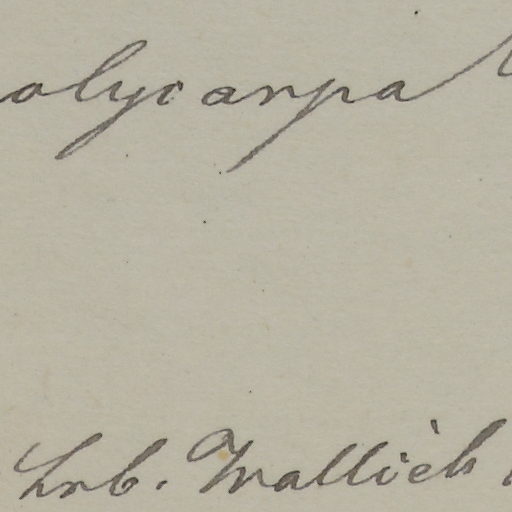 olycarpa
Hrb. Wallich